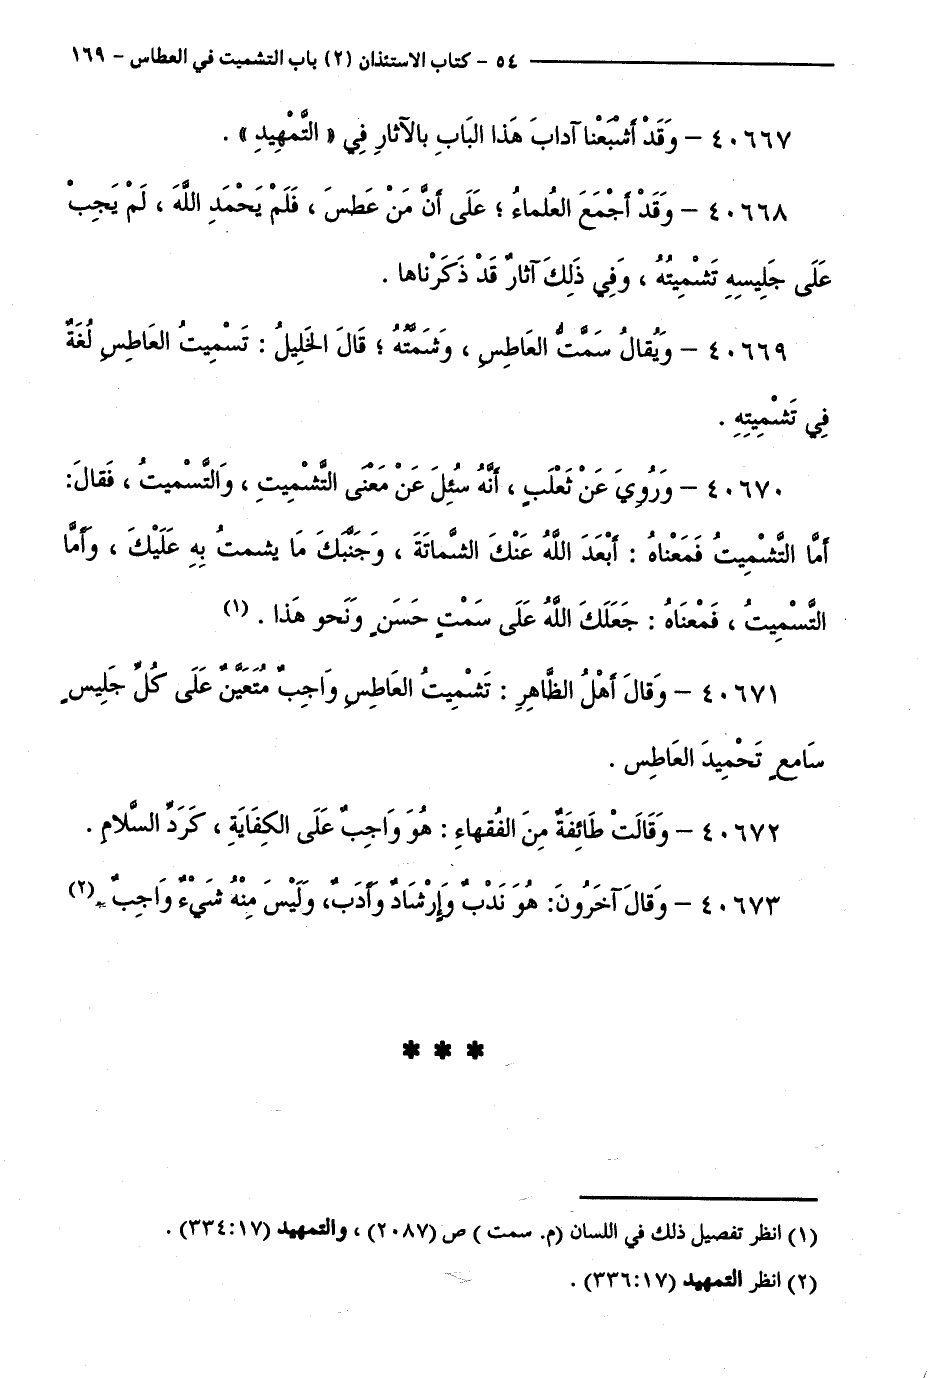 ٥٤ - كتاب الاستئذان (٢) باب التشميت في العطاس - ١٦٩
٤٠٦٦٧ – وَقَدْ أَشْبَعْنا آدابَ هَذا البَابِ بالآثارِ فِي « التَّمْهِيدِ » .
٤٠٦٦٨ – وَقَدْ أَجْمَعَ العُلماءُ ؛ عَلَى أَنَّ مَنْ عَطسَ ، فَلَمْ يَحْمَدِ اللَّهَ ، لَمْ يَجِبْ
عَلَى جَلِيسِهِ تَشْمِيتُهُ ، وَفِي ذَلِكَ آثارٌ قَدْ ذَكَرْناها .
٤٠٦٦٩ – وَيُقالُ سَمَّتُّ العَاطسِ ، وَشَمَّتُّهُ ؛ قَالَ الخَلِيلُ : تَسْمِيتُ العَاطِسِ لُغَةٌ
فِي تَشْمِيتِهِ .
٤٠٦٧٠ – وَرُوِيَ عَنْ ثَعْلَبٍ ، أَنَّهُ سُئِلَ عَنْ مَعْنَى التَّشْمِيتِ ، وَالتَّسْمِيتُ ، فَقالَ:
أمَّا التَّشْمِيتُ فَمَعْناهُ : أَبْعَدَ اللَّهُ عَنْكَ الشَّماتَةَ ، وَجَنَّبَكَ مَا يشمتُ بِهِ عَلَيْكَ ، وَأَمَّا
التَّسْمِيتُ ، فَمْعنَاهُ : جَعَلَكَ اللَّهُ عَلَى سَمْتٍ حَسَنٍ وَنَحو هَذا . (١)
٤٠٦٧١ – وَقالَ أَهْلُ الظَّاهِرِ : تَشْمِيتُ العَاطسِ وَاجِبٌ مُتَعَيَّنٌ عَلَى كُلِّ جَلِيسٍ
سَامعٍ تَحْمِيدَ العَاطِسِ .
٤٠٦٧٢ – وَقَالَتْ طَائِفَةٌ مِنَ الفُقهاءِ : هُوَ وَاجِبٌ عَلَى الكِفَايَةِ ، كَرَدِّ السَّلامِ .
٤٠٦٧٣ – وَقالَ آخَرُونَ: هُوَ نَدْبٌ وَإِرْشَادٌ وَأَدَبٌ، وَلَيْسَ مِنْهُ شَيْءٌ وَاجِبٌ . (٢)
* * *
(١) انظر تفصيل ذلك في اللسان (م. سمت ) ص (٢٠٨٧) ، والتمهيد (٣٣٤:١٧) .
(٢) انظر التمهيد (٣٣٦:١٧) .